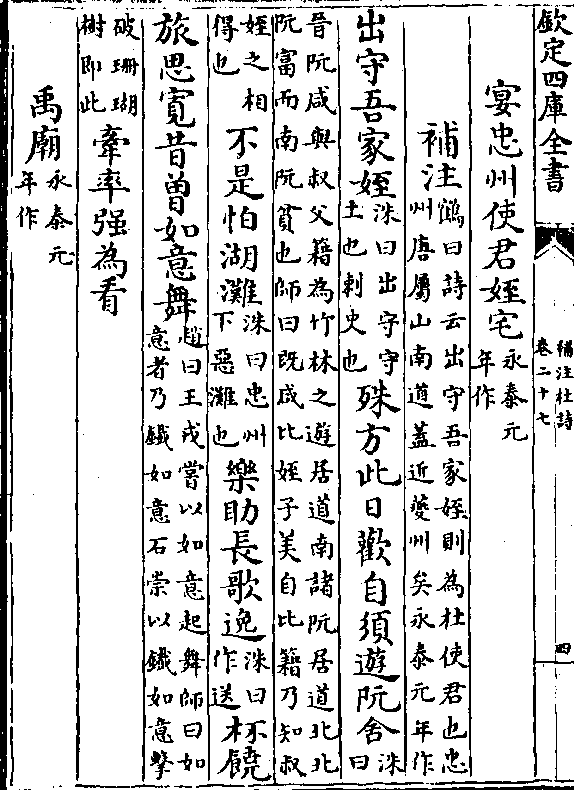 欽定四庫全書
補注杜詩
卷二十七
四
宴忠州使君姪宅
永泰元
年作
補注
鶴曰詩云出守吾家姪則為杜使君也忠
州唐屬山南道蓋近夔州矣永泰元年作
出守吾家姪
洙曰出守守
土也刺史也
殊方此日歡自須遊阮舍
洙曰
晉阮咸與叔父籍為竹林之遊居道南諸阮居道北北
阮富而南阮貧也師曰既咸比姪子美自比籍乃知叔
姪之相
得也
不是怕湖灘
洙曰忠州
下惡灘也
樂助長歌逸
洙曰
作送
杯饒
旅思寛昔曽如意舞
趙曰王戎嘗以如意起舞師曰如
意者乃鐵如意石崇以鐵如意擊
破珊瑚
樹即此
牽率强為看
禹廟
永泰元
年作